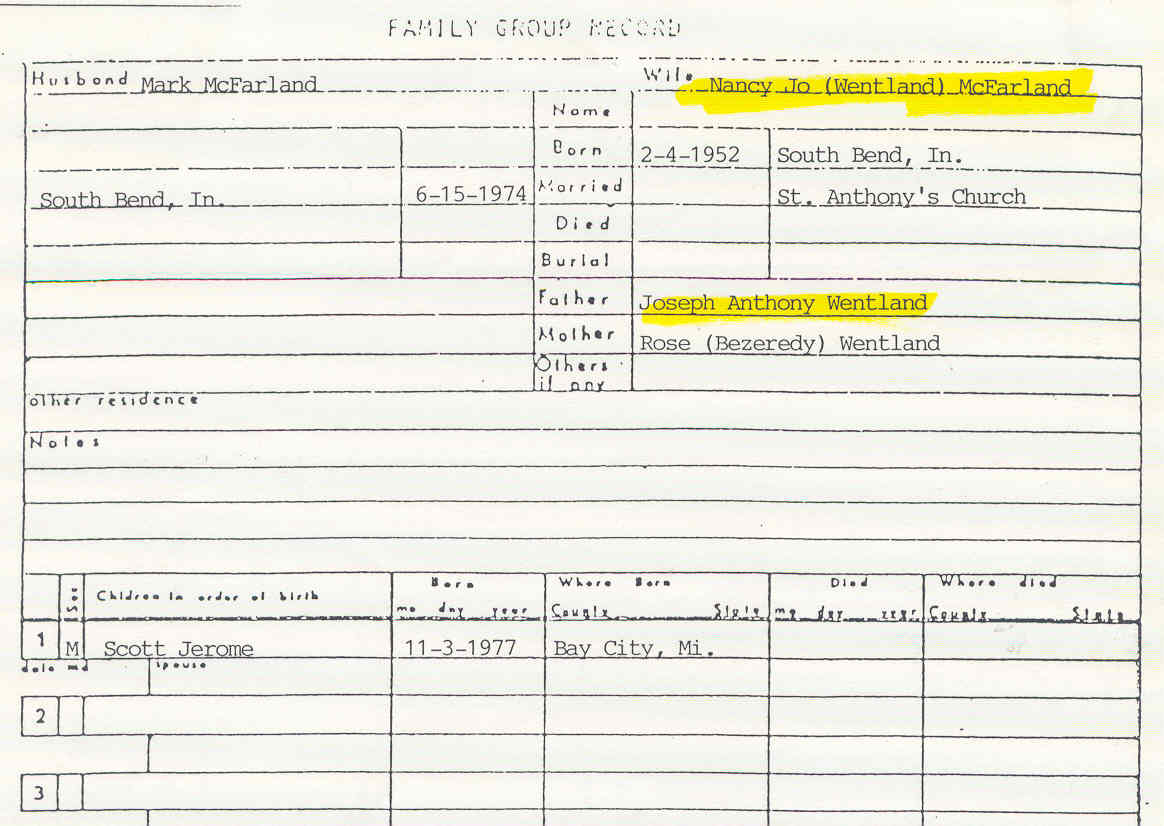 FAMILY GROUP RECORD
Husbond Mark McFarland Wife Nancy Jo (Wentland) McFarland
Name
Born 2-4-1952 South Bend, In.
South Bend, In. 6-15-1974 Married St. Anthony's Church
Died
Burial
Father Joseph Anthony Wentland
Mother Rose (Bezeredy) Wentland
Others
if any
other residence
Notes
Sex Children in order of birth Born Where Born Died Where died
mo day year County State mo day year County State
1 M Scott Jerome 11-3-1977 Bay City, Mi.
date md spouse
2
3